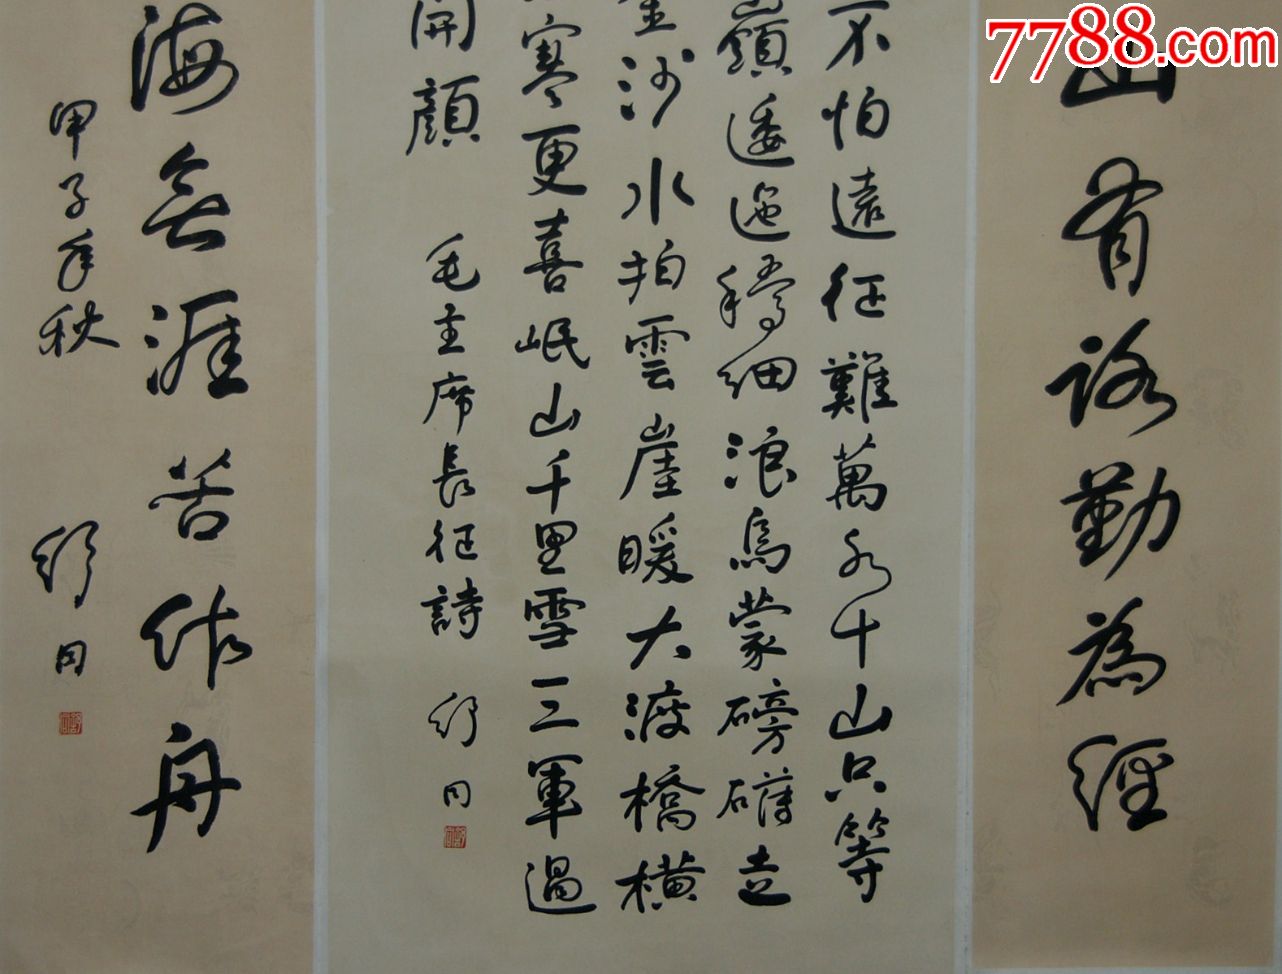 7788.com
山有路勤為經
不怕遠征難萬水千山只等
嶺逶迤騰細浪烏蒙磅礴走
金沙水拍雲崖暖大渡橋橫
寒更喜岷山千里雪三軍過
開顏 毛主席長征詩 舒同
海無涯苦作舟
甲子年秋 舒同